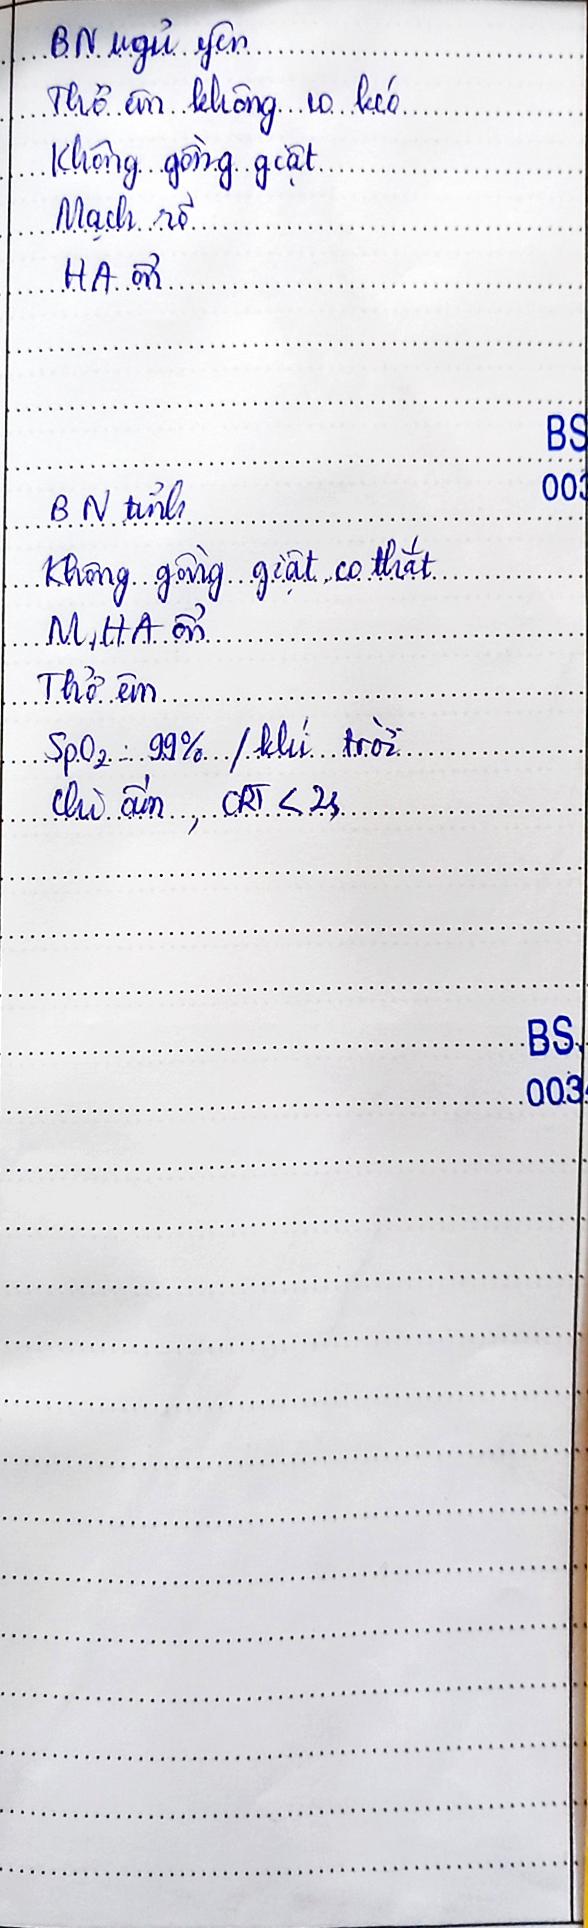 BN ngủ yên
Thở êm không co kéo
Không gồng giật
Mạch rõ
HA ổn
BS
003
BN tỉnh
Không gồng giật, co thắt
M, HA ổn
Thở êm
SpO2 = 99% / khí trời
Chi ấm, CRT < 2s
BS.
003